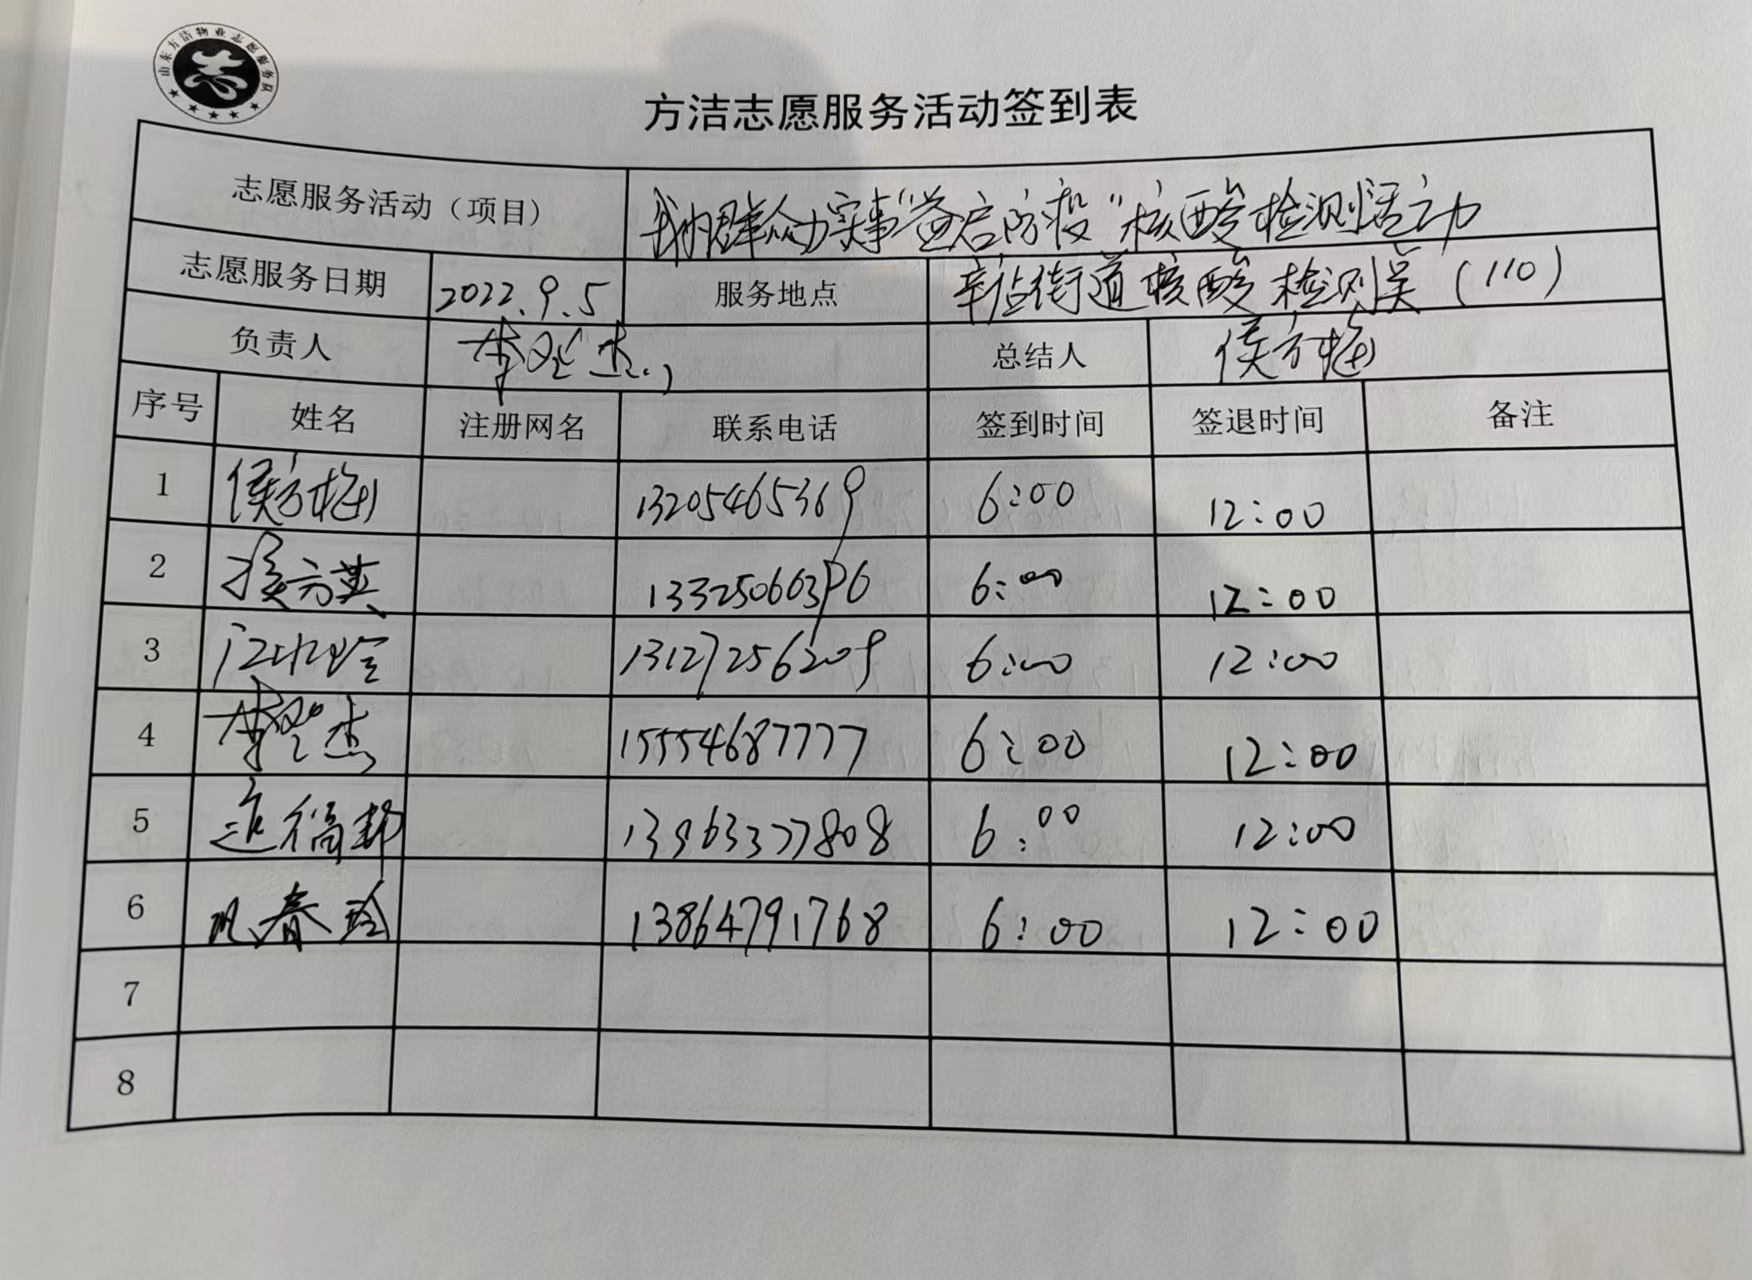 山东方洁物业志愿服务队
方洁志愿服务活动签到表
志愿服务活动（项目） 我为群众办实事“益启防疫”核酸检测活动
志愿服务日期 2022.9.5 服务地点 辛店街道核酸检测点（110）
负责人 李 杰 总结人 侯方梅
序号 姓名 注册网名 联系电话 签到时间 签退时间 备注
1 侯方梅 13205465369 6:00 12:00
2 侯方英 6:00 12:00
3 13127256209 6:00 12:00
4 李 杰 15554687777 6:00 12:00
5 福 13963377808 6:00 12:00
6 春玲 13864791768 6:00 12:00
7
8